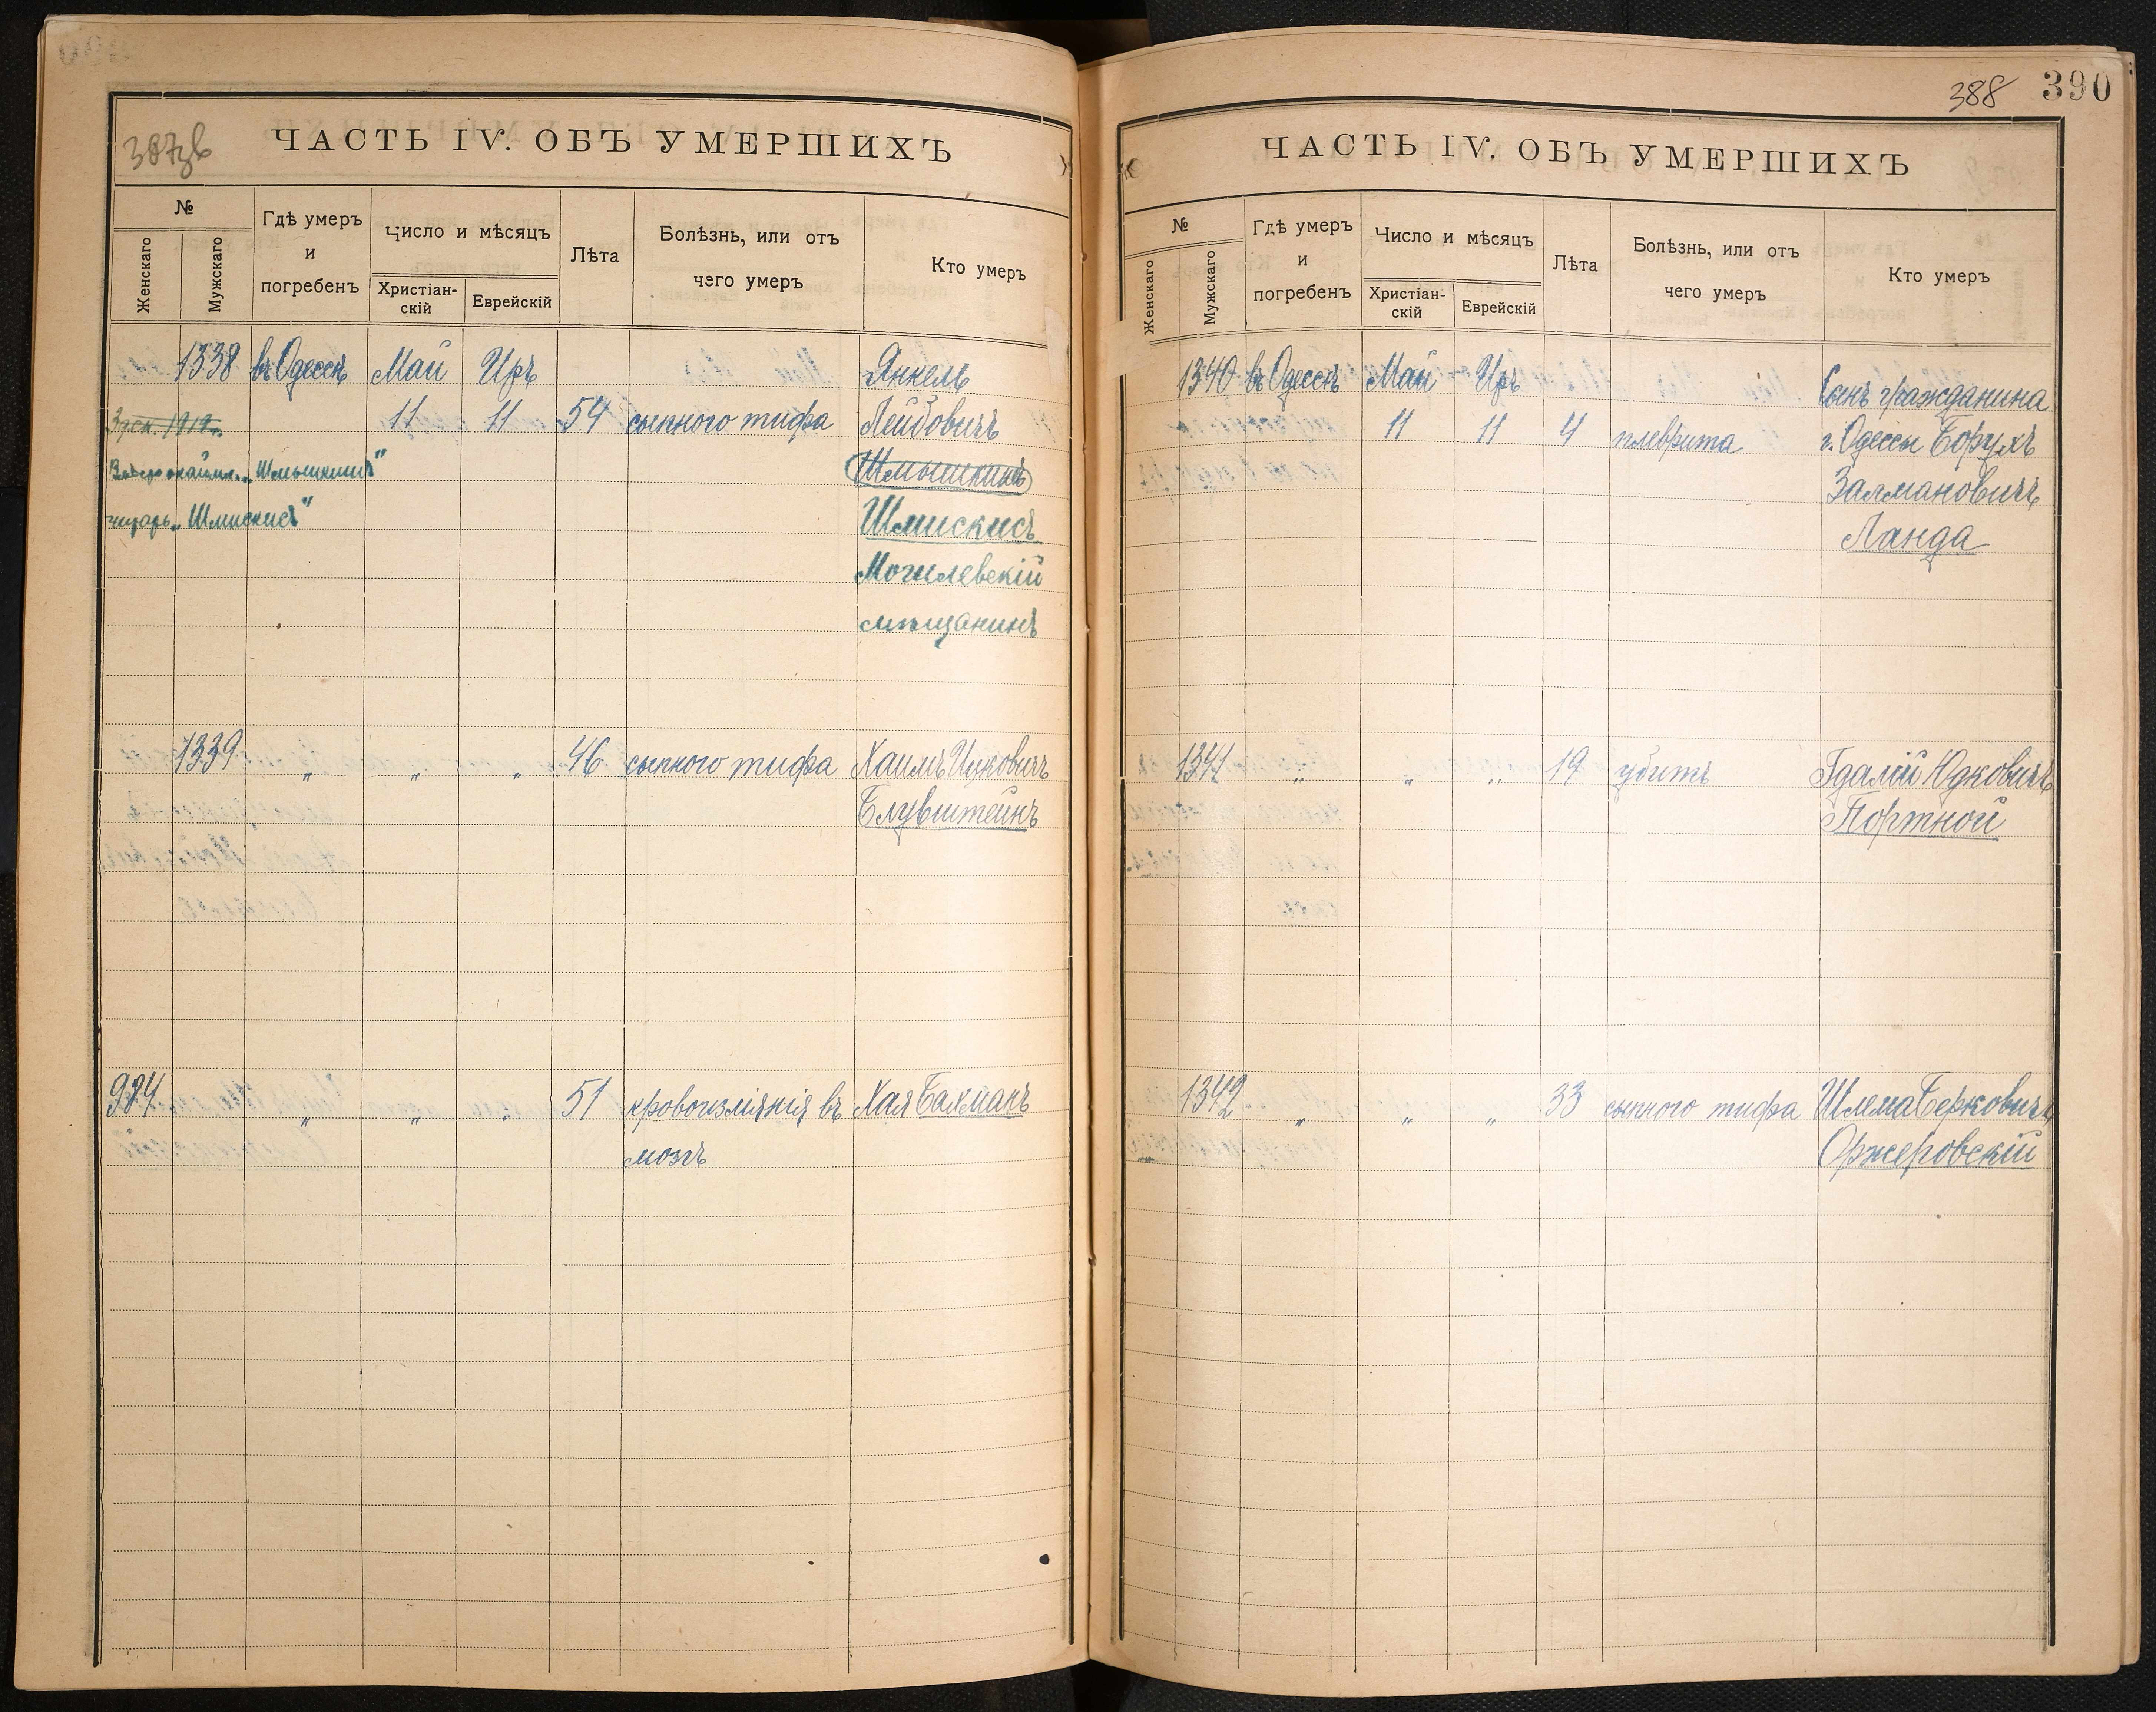 387зв
ЧАСТЬ IV. ОБЪ УМЕРШИХЪ
№
Женскаго
Мужскаго
Гдѣ умеръ
и
погребенъ
Число и мѣсяцъ
Христіан-
скій
Еврейскій
Лѣта
Болѣзнь, или отъ
чего умеръ
Кто умеръ
1338 въ Одессѣ Май Иръ Янкель
11 11 54 сыпного тифа Лейбовичъ
Шмышкинъ
"Шмышкинъ"
читать "Шмискисъ" Шмискисъ
Могилевскій
мѣщанинъ
1339 " " " 46 сыпного тифа Хаимъ Ицковичъ
Блувштейнъ
984 " " " 51 кровоизліянія въ Хая Бахманъ
мозгъ
388 390
ЧАСТЬ IV. ОБЪ УМЕРШИХЪ
№
Женскаго
Мужскаго
Гдѣ умеръ
и
погребенъ
Число и мѣсяцъ
Христіан-
скій
Еврейскій
Лѣта
Болѣзнь, или отъ
чего умеръ
Кто умеръ
1340 въ Одессѣ Май Иръ Сынъ гражданина
11 11 4 плеврита г. Одессы Борухъ
Залмановичъ
Ланда
1341 " " " 19 убитъ Гдалій Юдковичъ
Портной
1342 " " " 33 сыпного тифа Шлема Берковичъ
Оржеровскій